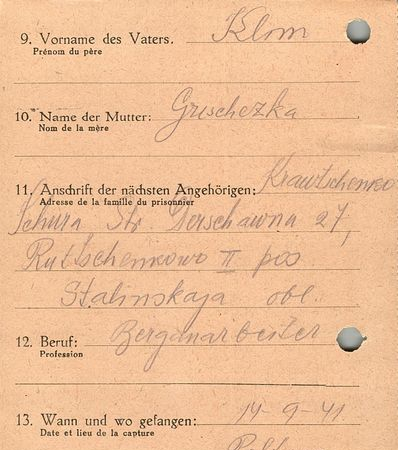 9. Vorname des Vaters. Klom
Prénom du père
10. Name der Mutter: Grischezka
Nom de la mère
11. Anschrift der nächsten Angehörigen: Krawtschenko
Adresse de la famille du prisonnier
Schura Str Derschawna 27,
Rutschenkowo II pos
Stalinskaja obl.
12. Beruf: Berganarbeiter
Profession
13. Wann und wo gefangen: 14-9-41
Date et lieu de la capture